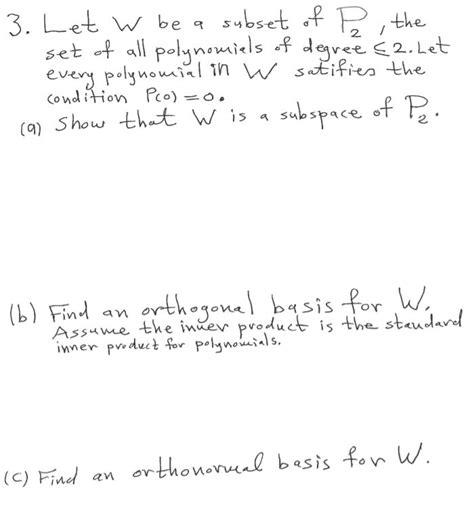 3. Let W be a subset of P₂, the
set of all polynomials of degree ≤ 2. Let
every polynomial in W satifies the
condition P(0) = 0.
(a) Show that W is a subspace of P₂.
(b) Find an orthogonal basis for W.
Assume the inner product is the standard
inner product for polynomials.
(c) Find an orthonormal basis for W.